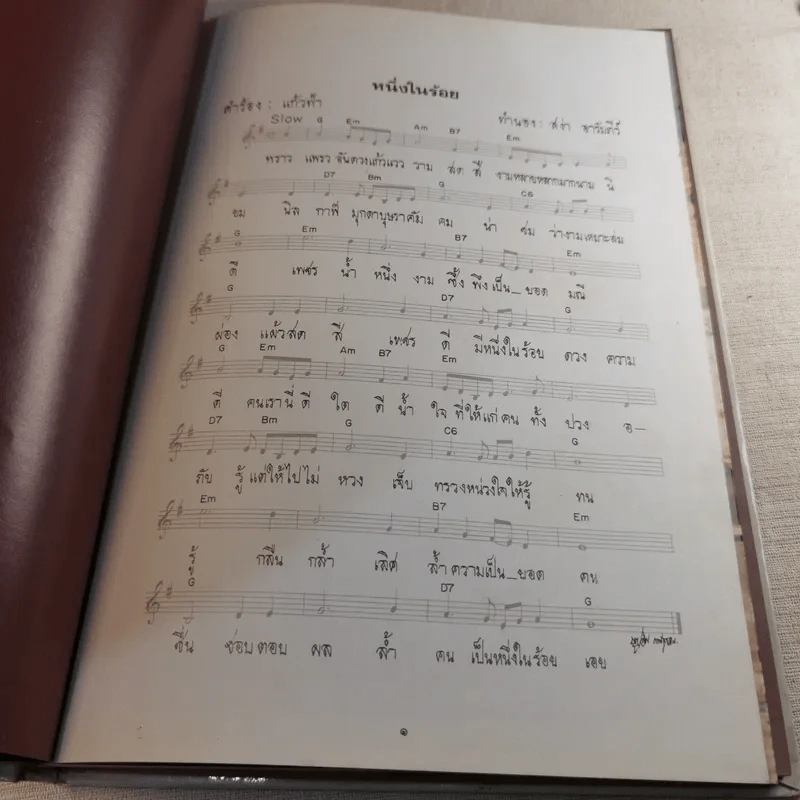 หนึ่งในร้อย
คำร้อง : แก้วฟ้า
ทำนอง : สง่า อารัมภีร์
Slow G Em Am B7 Em
พราว แพรว อันดวงแก้วแวว วาม สด สี งามหลายหลากมากนาม นิ
D7 Bm G C6
ยม นิล กาฬ มุกดาบุษราคัม คม น่า ชม ว่างามเหมาะสม
G Em B7 Em
ดี เพชร น้ำ หนึ่ง งาม ซึ้ง พึงเป็น_ยอด มณี
G D7 G
ผ่อง แผ้วสด สี เพชร ดี มีหนึ่งในร้อย ดวง ความ
G Em Am B7 Em
ดี คนเรานี่ ดี ใด ดี น้ำ ใจ ที่ให้แก่คน ทั้ง ปวง อ-
D7 Bm G C6 G
ภัย รู้ แต่ให้ไปไม่ หวง เจ็บ ทรวงหน่วงใจให้รู้ ทน
Em B7 Em
รู้ กลืน กล้ำ เลิศ ล้ำ ความเป็น_ยอด คน
G D7 G
ชื่น ชอบ ตอบ ผล ล้ำ คน เป็นหนึ่งในร้อย เอย
๑